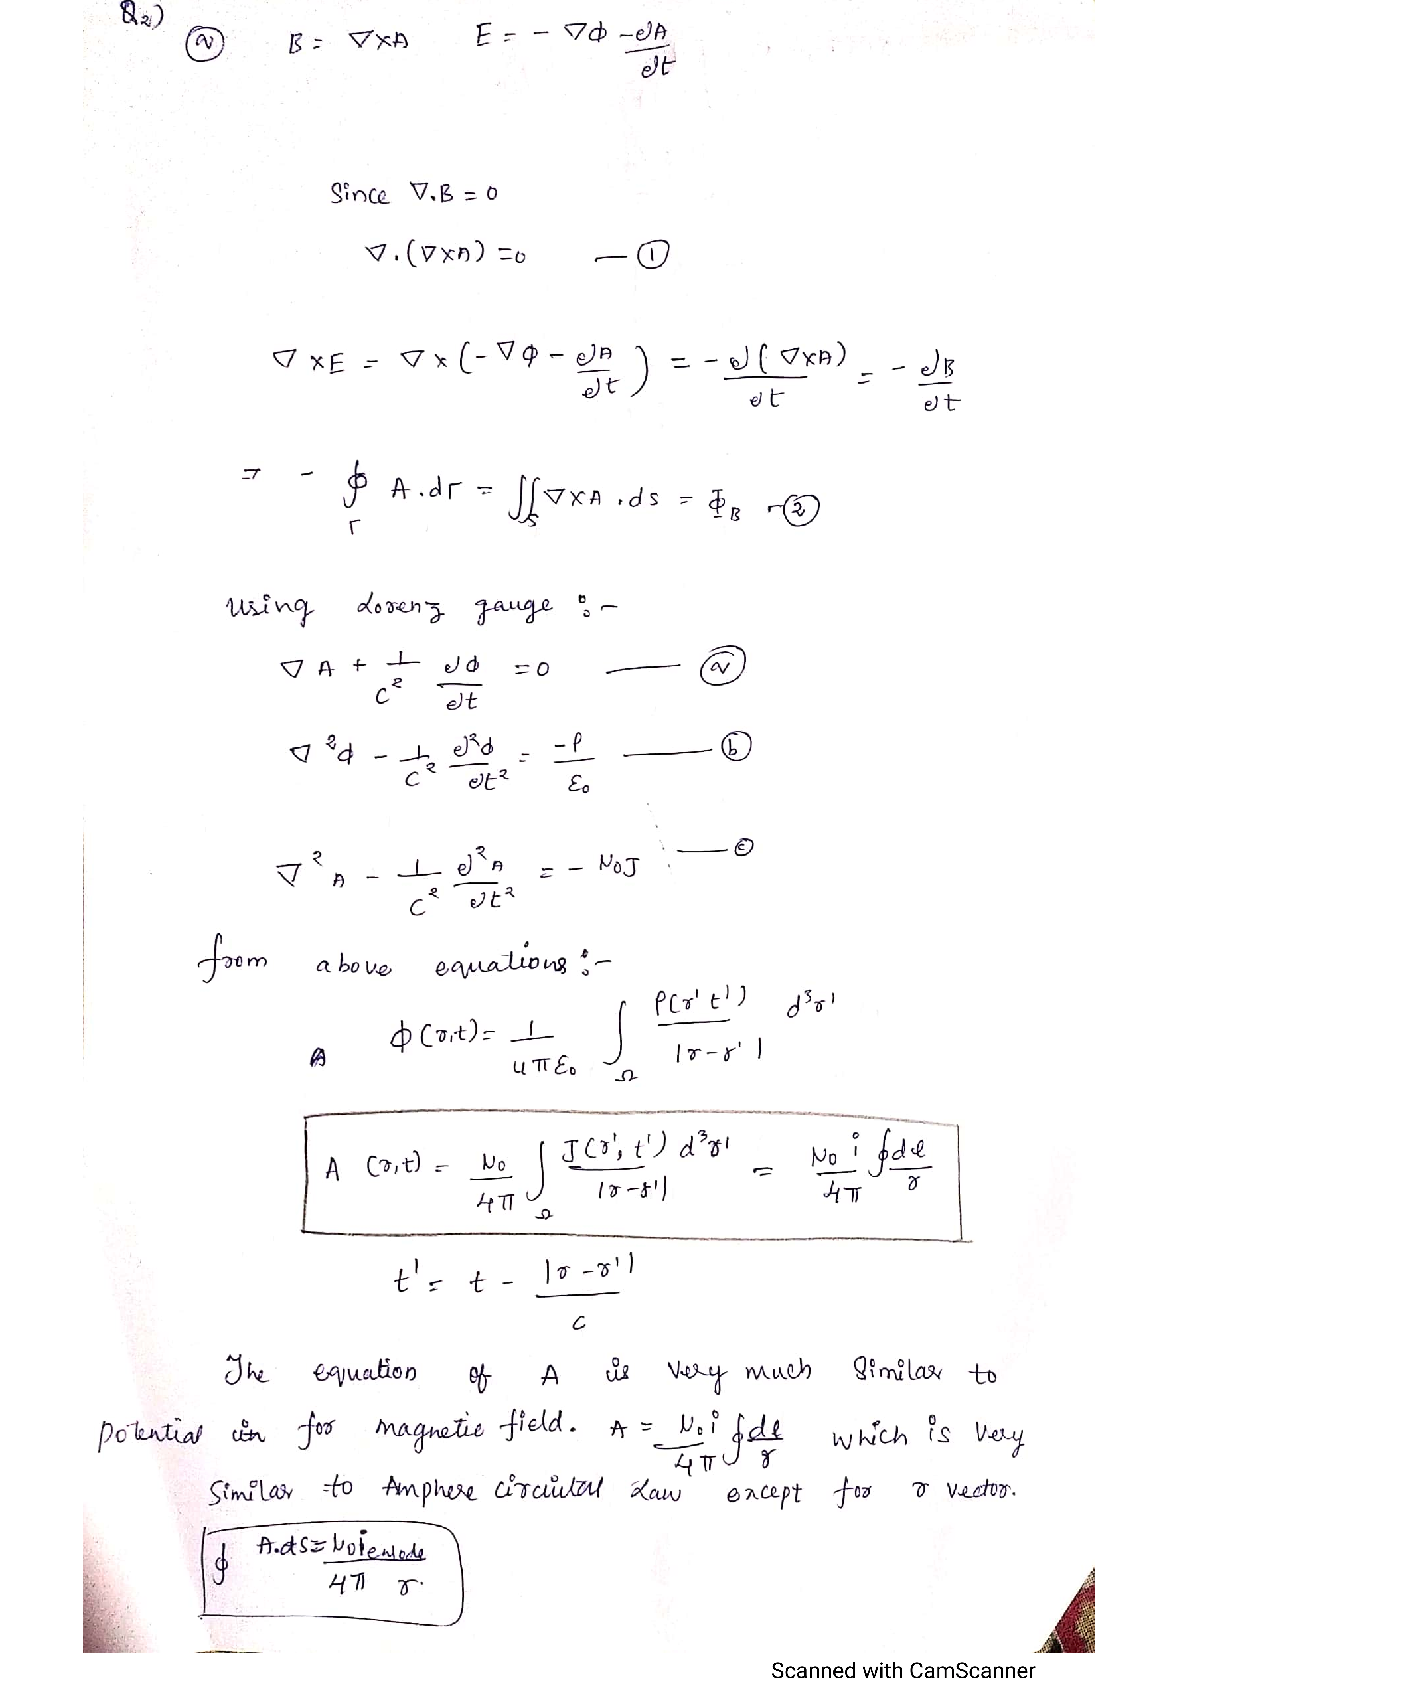 Q2)
a B = ∇×A E = - ∇Φ - ∂A/∂t
Since ∇.B = 0
∇.(∇×A) = 0 — 1
∇×E = ∇×(-∇φ - ∂A/∂t) = -∂(∇×A)/∂t = -∂B/∂t
⇒ - ∮Γ A.dΓ = ∬S ∇×A.ds = ΦB - 2
Using Lorenz gauge :-
∇A + 1/c² ∂φ/∂t = 0 — a
∇²φ - 1/c² ∂²φ/∂t² = -ρ/ε₀ — b
∇²A - 1/c² ∂²A/∂t² = - μ₀J — c
from above equations :-
φ(r,t) = 1/4πε₀ ∫Ω ρ(r' t')/|r-r'| d³r'
A (r,t) = μ₀/4π ∫Ω J(r', t') d³r'/|r-r'| = μ₀ i/4π ∮dl/r
t' = t - |r-r'|/c
The equation of A is very much similar to
potential in for magnetic field. A = μ₀i/4π ∮dl/r which is very
similar to Amphere circuital Law except for r vector.
∮ A.ds = μ₀i/4π r.
Scanned with CamScanner